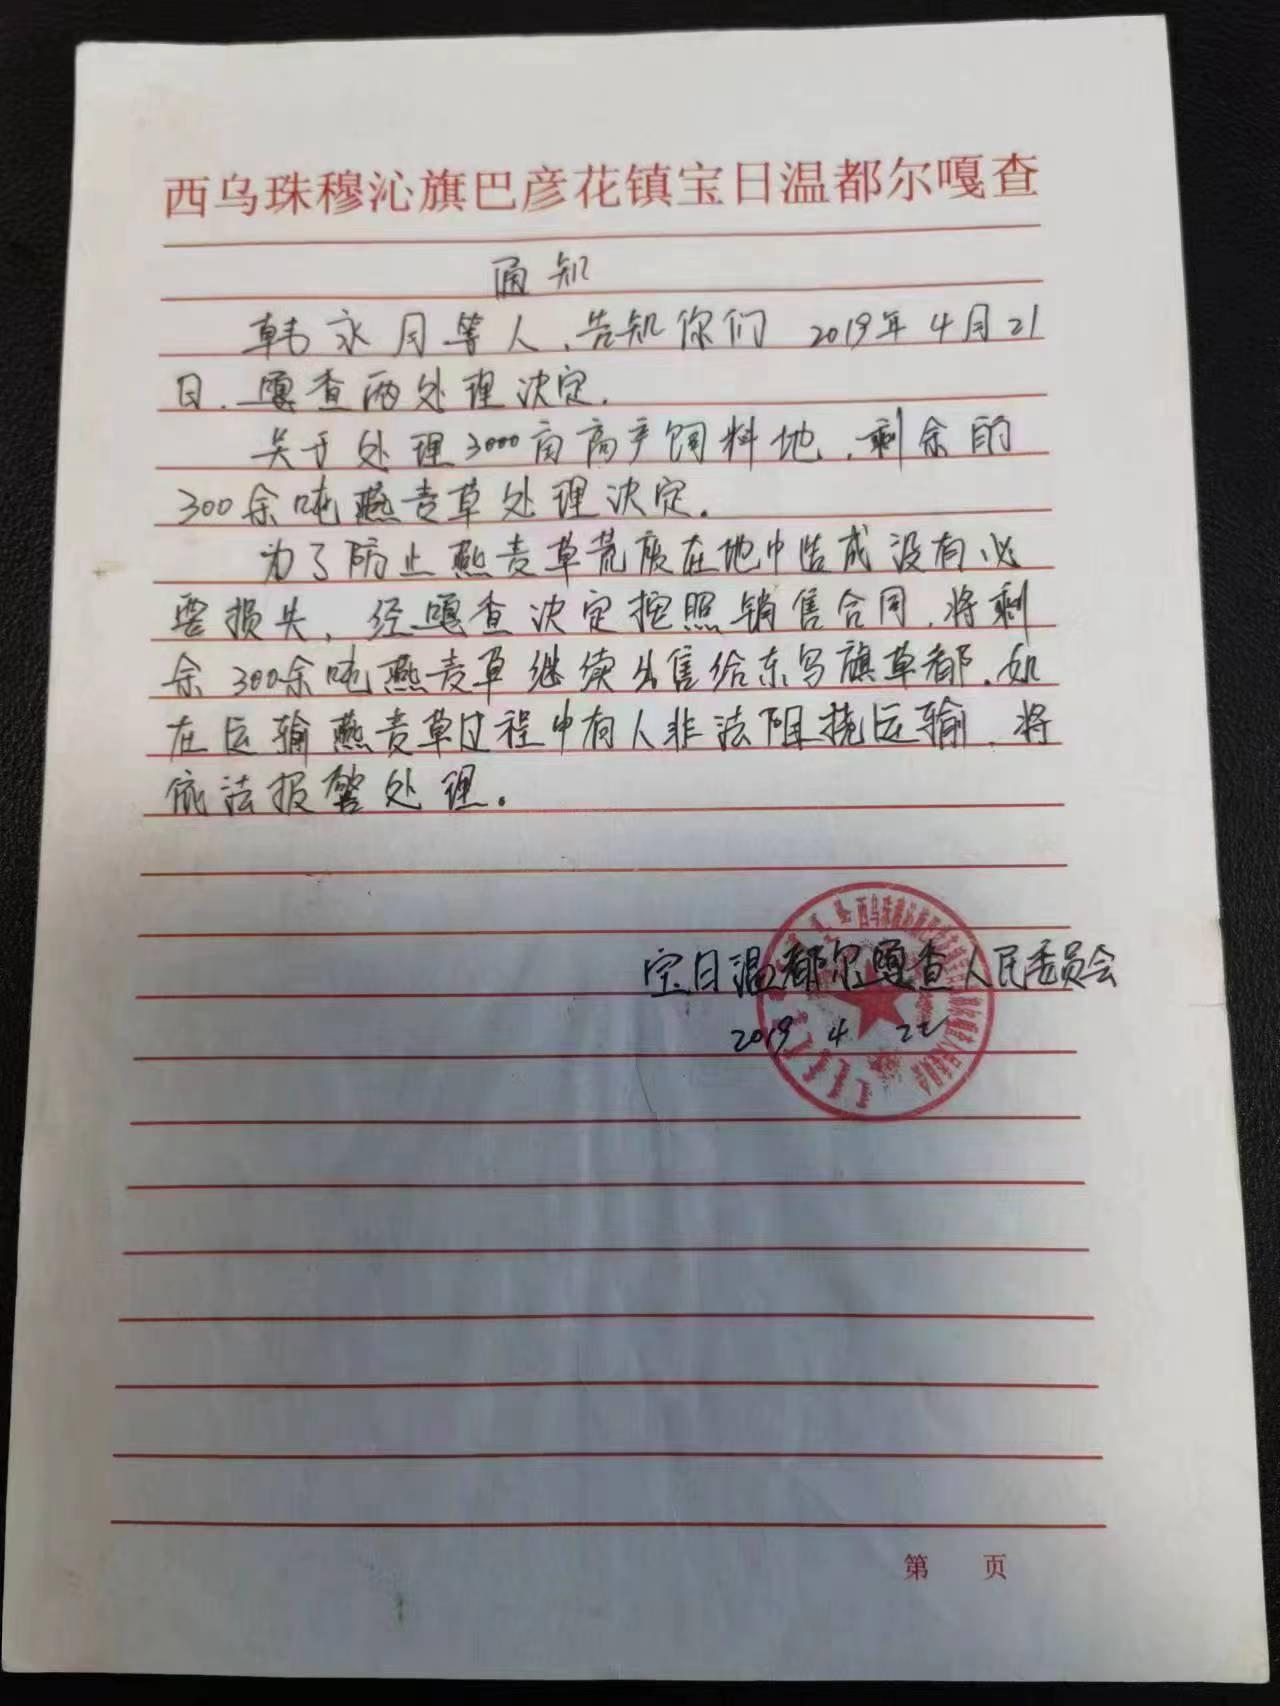 西乌珠穆沁旗巴彦花镇宝日温都尔嘎查
通知
韩永月等人、告知你们 2019年4月21
日、嘎查两处理决定.
关于处理3000亩高产饲料地、剩余的
300余吨燕麦草处理决定.
为了防止燕麦草荒废在地中造成没有必
要损失、经嘎查决定按照销售合同、将剩
余300余吨燕麦草继续出售给东乌旗草都、如
在运输燕麦草过程中有人非法阻挠运输、将
依法报警处理。
宝日温都尔嘎查人民委员会
2019 4 22
第 页